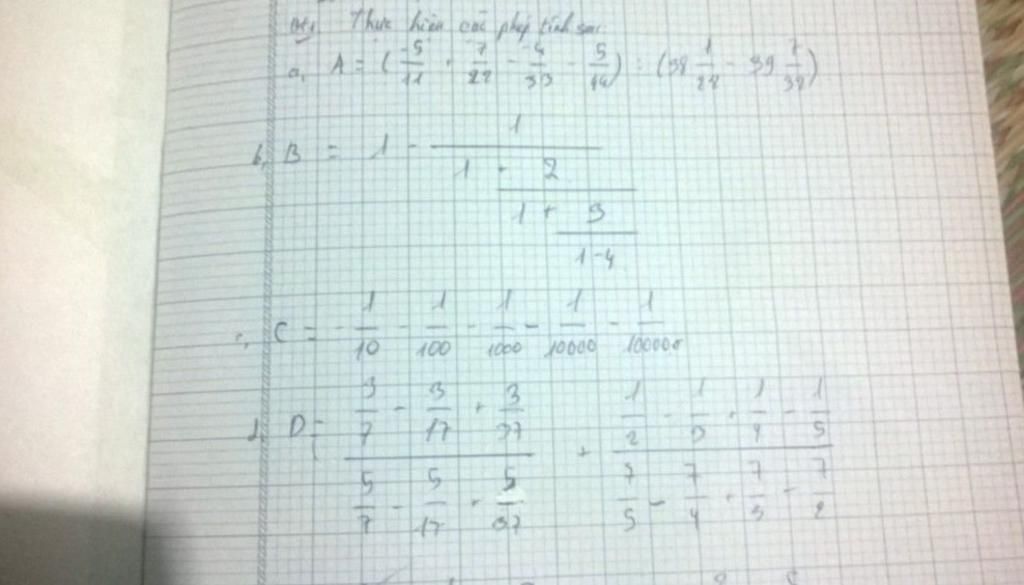 Thực hiện các phép tính sau
a, A = (-5/11 + 7/22 - -4/33 - 5/44) : (38 1/22 - 39 7/38)
b, B = 1 - 1/(1 - 2/(1 + 3/(1-4)))
C = -1/10 - 1/100 - 1/1000 - 1/10000 - 1/100000
d, D = (3/7 - 3/17 + 3/37)/(5/7 - 5/17 + 5/37) + (1/2 - 1/3 + 1/4 - 1/5)/(7/5 - 7/4 + 7/3 - 7/2)